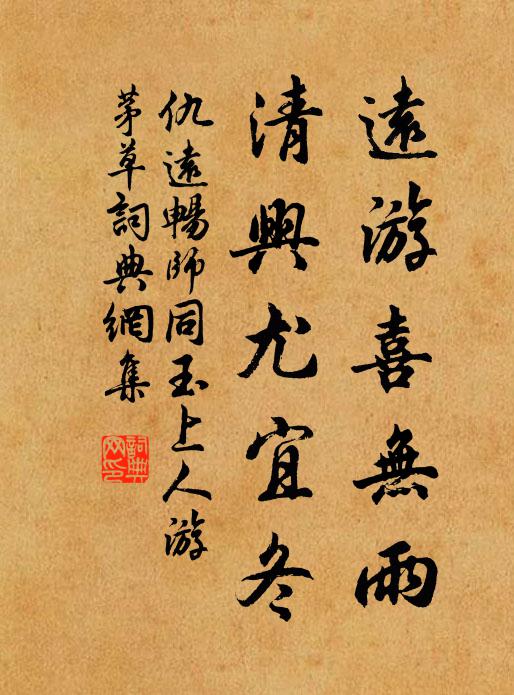 遠游喜無雨
清興尤宜冬
仇遠暢師同玉上人游
茅草詞典網集
詞典網印